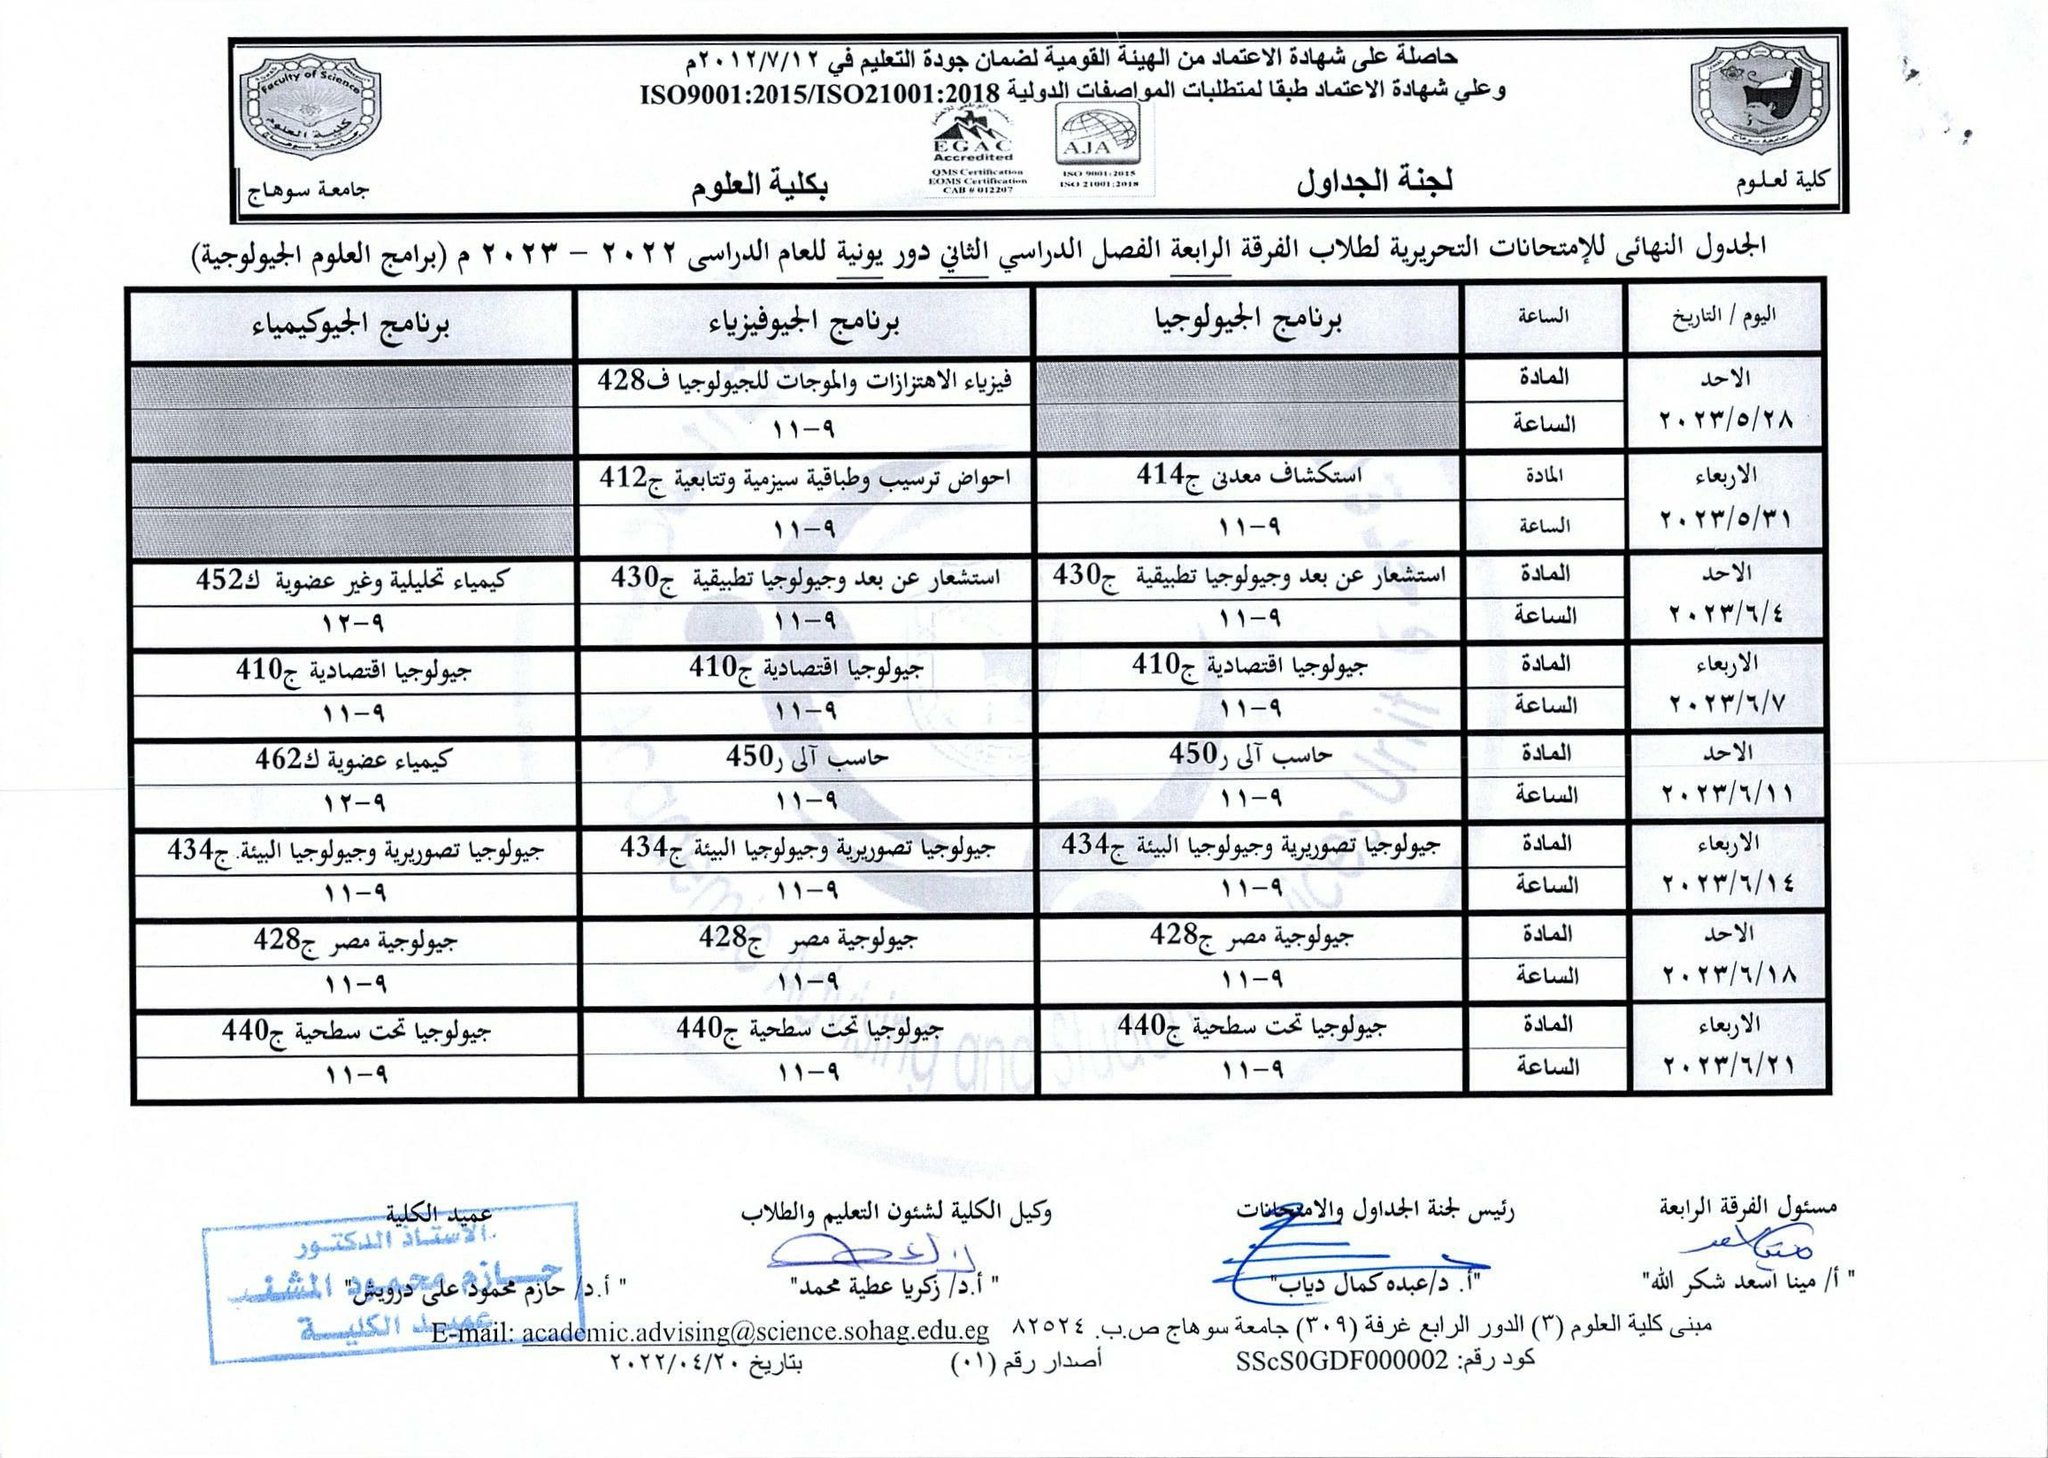 حاصلة على شهادة الاعتماد من الهيئة القومية لضمان جودة التعليم في ٢٠١٢/٧/١٢م
وعلي شهادة الاعتماد طبقا لمتطلبات المواصفات الدولية ISO9001:2015/ISO21001:2018
Faculty of Science
كلية العلوم
جامعة سوهاج
EGAC
Accredited
QMS Certification
EOMS Certification
CAB # 012207
AJA
ISO 9001:2015
ISO 21001:2018
كلية لعلوم
لجنة الجداول
بكلية العلوم
جامعة سوهاج
الجدول النهائى للإمتحانات التحريرية لطلاب الفرقة الرابعة الفصل الدراسي الثاني دور يونية للعام الدراسى ٢٠٢٢ – ٢٠٢٣ م (برامج العلوم الجيولوجية)
اليوم / التاريخ الساعة برنامج الجيولوجيا برنامج الجيوفيزياء برنامج الجيوكيمياء
الاحد المادة فيزياء الاهتزازات والموجات للجيولوجيا ف428
٢٠٢٣/٥/٢٨ الساعة ٩–١١
الاربعاء المادة استكشاف معدنى ج414 احواض ترسيب وطباقية سيزمية وتتابعية ج412
٢٠٢٣/٥/٣١ الساعة ٩–١١ ٩–١١
الاحد المادة استشعار عن بعد وجيولوجيا تطبيقية ج430 استشعار عن بعد وجيولوجيا تطبيقية ج430 كيمياء تحليلية وغير عضوية ك452
٢٠٢٣/٦/٤ الساعة ٩–١١ ٩–١١ ٩–١٢
الاربعاء المادة جيولوجيا اقتصادية ج410 جيولوجيا اقتصادية ج410 جيولوجيا اقتصادية ج410
٢٠٢٣/٦/٧ الساعة ٩–١١ ٩–١١ ٩–١١
الاحد المادة حاسب آلى ر450 حاسب آلى ر450 كيمياء عضوية ك462
٢٠٢٣/٦/١١ الساعة ٩–١١ ٩–١١ ٩–١٢
الاربعاء المادة جيولوجيا تصوريرية وجيولوجيا البيئة ج434 جيولوجيا تصوريرية وجيولوجيا البيئة ج434 جيولوجيا تصوريرية وجيولوجيا البيئة. ج434
٢٠٢٣/٦/١٤ الساعة ٩–١١ ٩–١١ ٩–١١
الاحد المادة جيولوجية مصر ج428 جيولوجية مصر ج428 جيولوجية مصر ج428
٢٠٢٣/٦/١٨ الساعة ٩–١١ ٩–١١ ٩–١١
الاربعاء المادة جيولوجيا تحت سطحية ج440 جيولوجيا تحت سطحية ج440 جيولوجيا تحت سطحية ج440
٢٠٢٣/٦/٢١ الساعة ٩–١١ ٩–١١ ٩–١١
مسئول الفرقة الرابعة رئيس لجنة الجداول والامتحانات وكيل الكلية لشئون التعليم والطلاب عميد الكلية
الأستاذ الدكتور
حازم محمود
عميد الكلية
" أ/ مينا اسعد شكر الله" "أ. د/عبده كمال دياب" " أ.د/ زكريا عطية محمد" " أ.د/ حازم محمود على درويش"
مبنى كلية العلوم (٣) الدور الرابع غرفة (٣٠٩) جامعة سوهاج ص.ب. ٨٢٥٢٤ E-mail: academic.advising@science.sohag.edu.eg
كود رقم: SScS0GDF000002 أصدار رقم (٠١) بتاريخ ٢٠٢٢/٠٤/٢٠